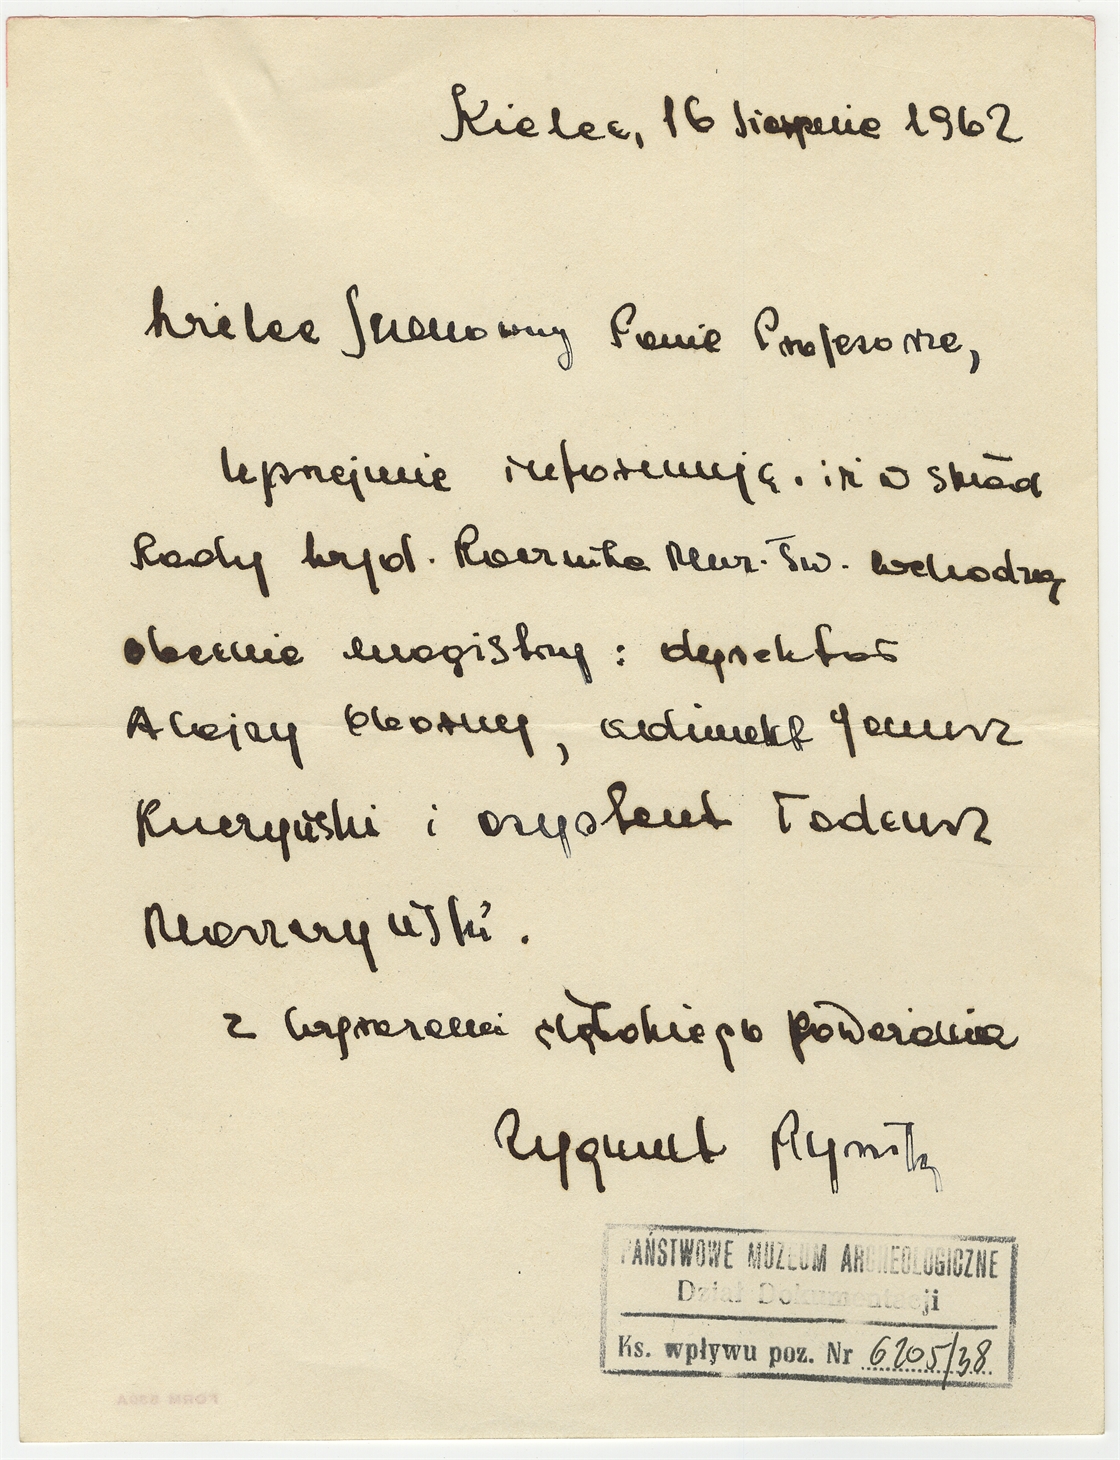 Kielce, 16 sierpnia 1962
Wielce Szanowny Panie Profesorze,
Uprzejmie informuję, iż w skład
Rady Wyd. Rocznika Muz. Św. wchodzą
obecnie magistrzy: dyrektor
Alojzy Oborny, adiunkt Janusz
Kuczyński i asystent Tadeusz
Maszczyński.
z wyrazami głębokiego poważania
Zygmunt
PAŃSTWOWE MUZEUM ARCHEOLOGICZNE
Dział Dokumentacji
Ks. wpływu poz. Nr 6205/38
FORM 539A